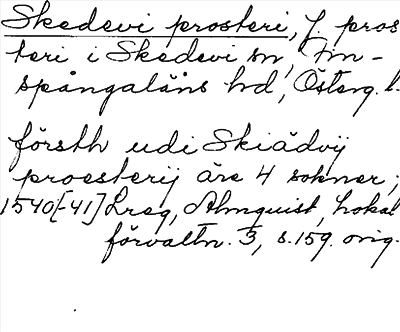 Skedevi prosteri, f. pros
teri i Skedevi sn, Fin-
spångaläns hd, Österg. l.
försth udi Skiädvij
proesterij äre 4 sokner;
1540[-41] Lreg, Almquist, Lokal
förvaltn. 3, s. 159. orig.